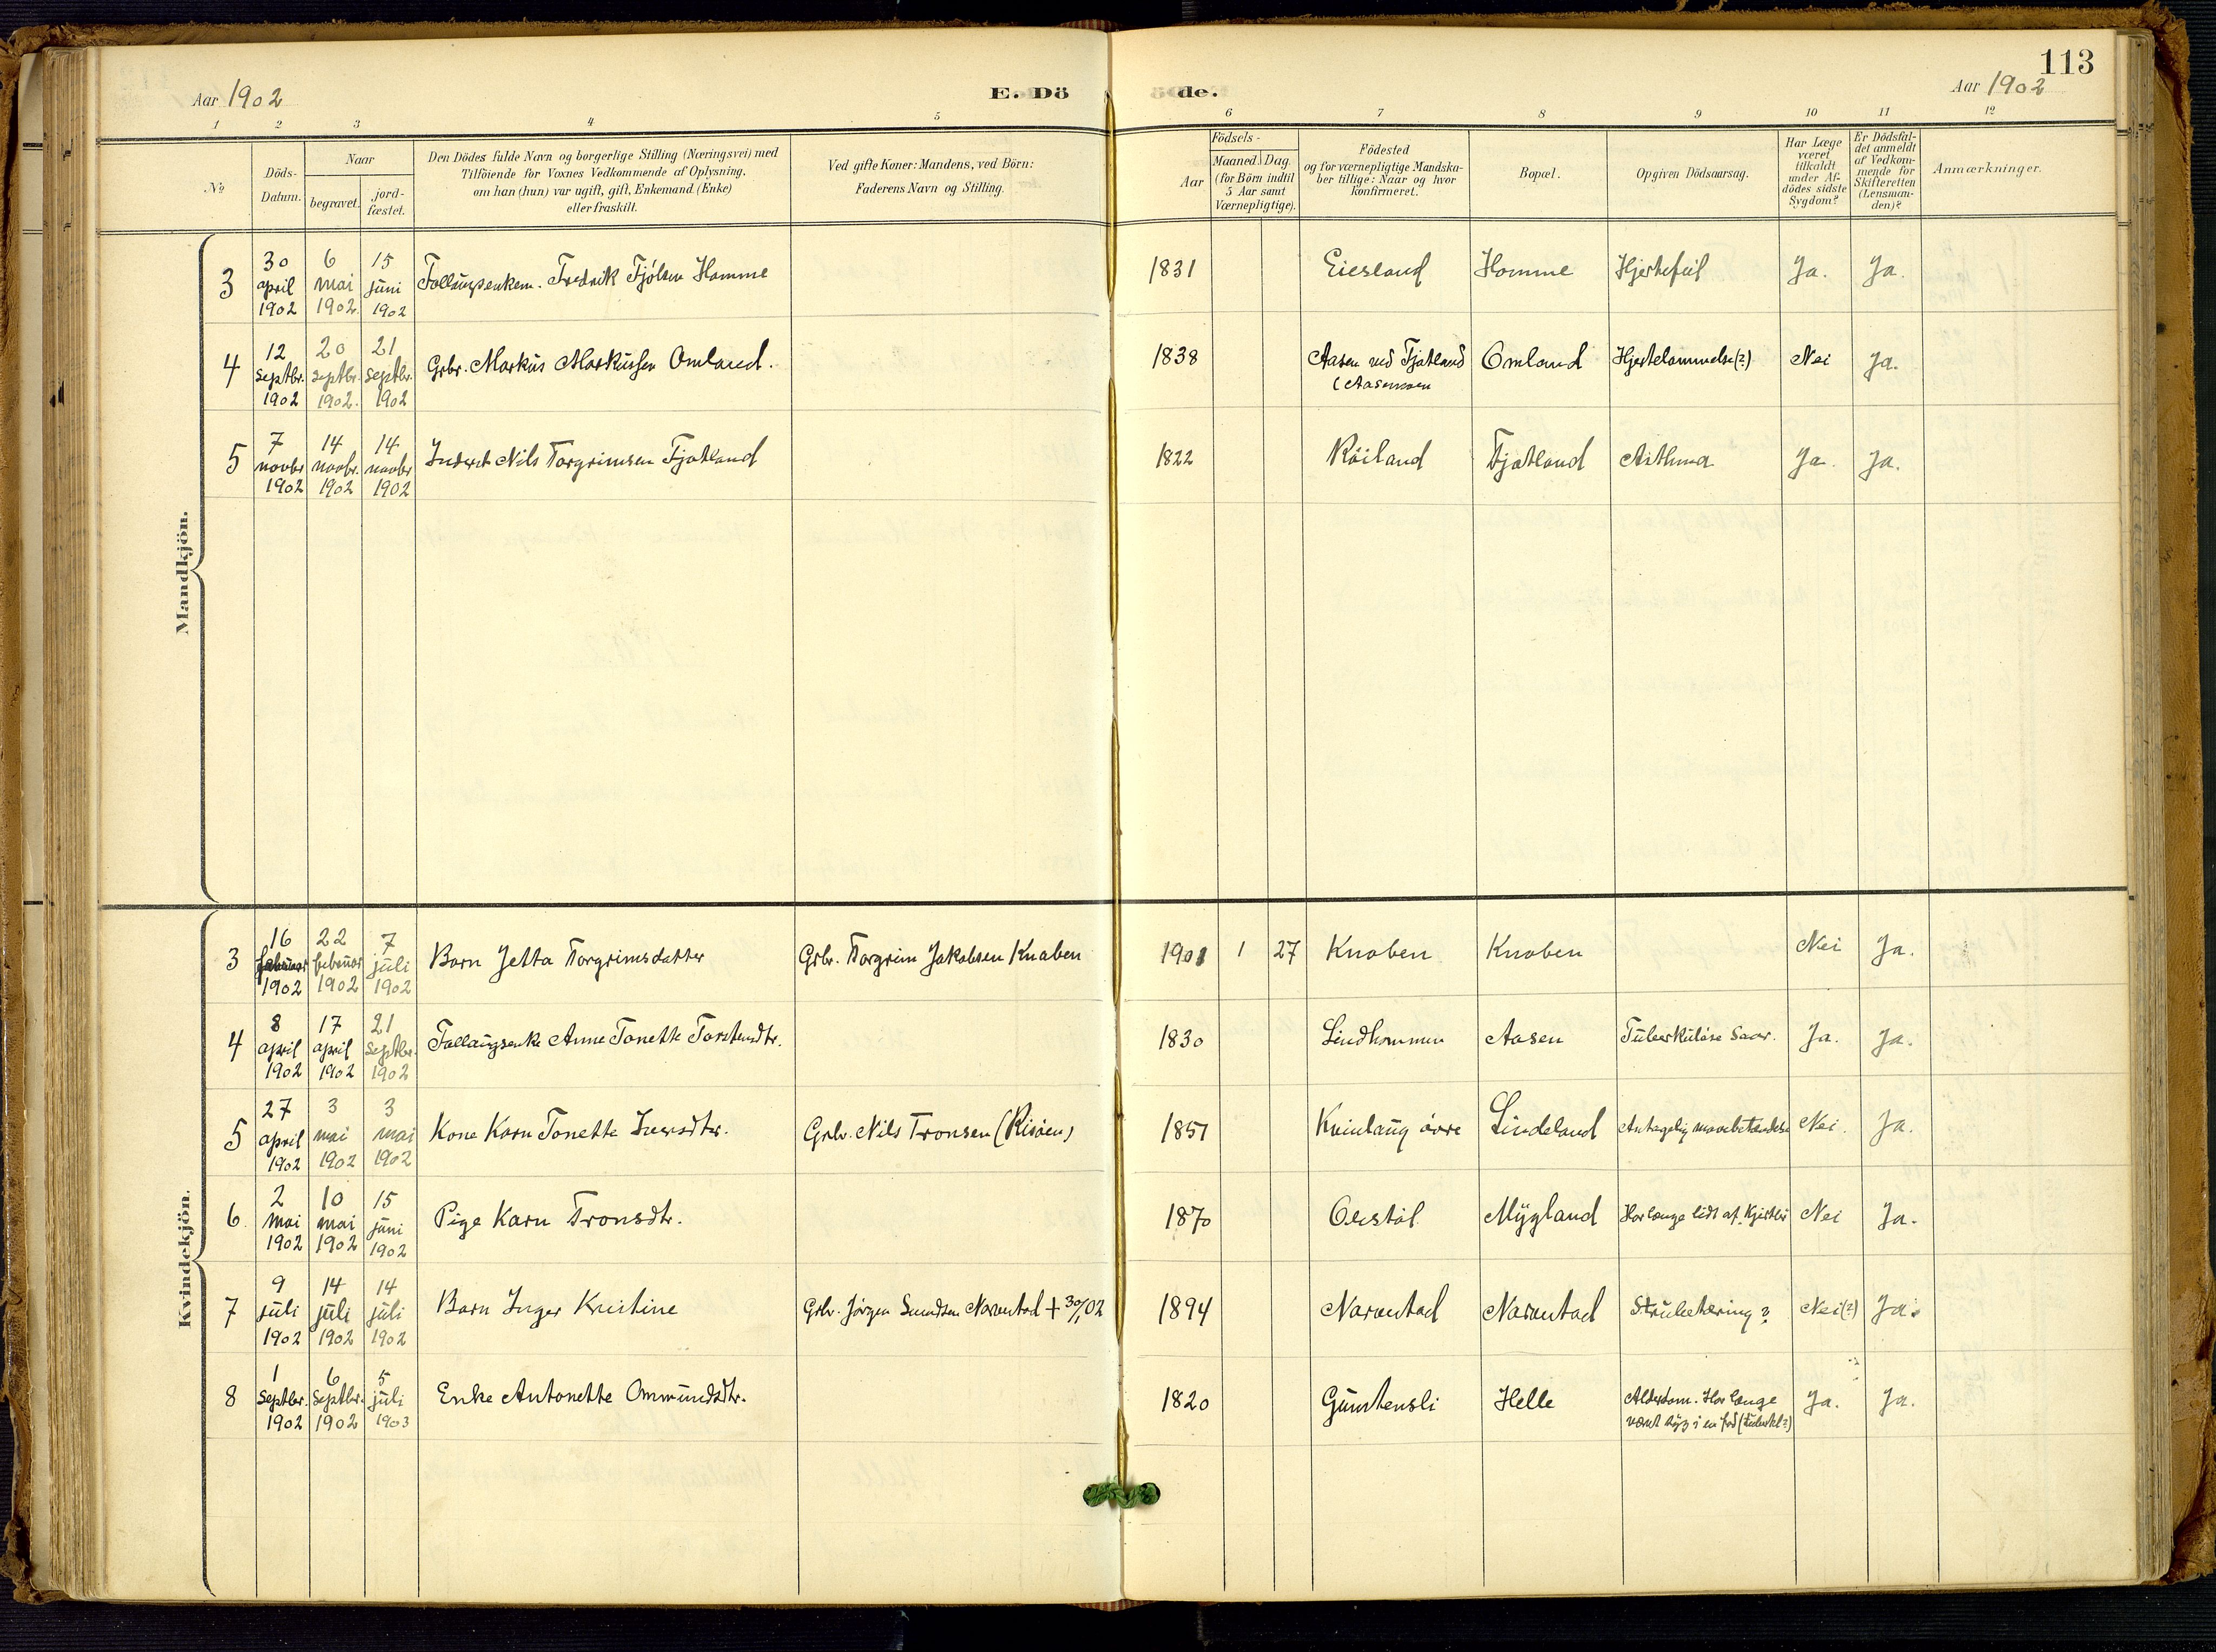 113
Aar 1902
E. Dö
de.
Aar 1902
1 2 3 4 5 6 7 8 9 10 11 12
No
Döds-
Datum.
Naar
begravet.
jord-
fæstet.
Den Dödes fulde Navn og borgerlige Stilling (Næringsvei) med
Tilföiende for Voxnes Vedkommende af Oplysning,
om han (hun) var ugift, gift, Enkemand (Enke)
eller fraskilt.
Ved gifte Koner: Mandens, ved Börn:
Faderens Navn og Stilling.
Födsels-
Aar
Maaned. Dag.
(for Börn indtil
5 Aar samt
Værnepligtige).
Födested
og for værnepligtige Mandska-
ber tillige: Naar og hvor
konfirmeret.
Bopæl.
Opgiven Dödsaarsag.
Har Læge
været
tilkaldt
under Af-
dödes sidste
Sygdom?
Er Dödsfal-
det anmeldt
af Vedkom-
mende for
Skifteretten
(Lensman-
den)?
Anmærkninger.
Mandkjön.
3 30 april 1902 6 mai 1902 15 juni 1902 Fredrik Fjölsen Homme 1831 Eiesland Homme Hjertefeil Ja. Ja.
4 12 septbr. 1902 20 septbr. 1902. 21 septbr. 1902 Grbr. Markus Markussen Omland. 1838 Aasen ved Fjotland (Aasenmoen Omland Hjertelammelse(?) Nei Ja.
5 7 novbr 1902 14 novbr. 1902 14 novbr 1902 Inderst Nils Torgrimsen Fjotland 1822 Röiland Fjotland Asthma Ja. Ja.
Kvindekjön.
3 16 februar 1902 22 februar 1902 7 juli 1902 Barn Jetta Torgrimsdatter Grbr. Torgrim Jakobsen Knaben 1901 1 27 Knaben Knaben Nei Ja.
4 8 april 1902 17 april 1902 21 septbr. 1902 Anne Tonette Torstensdtr. 1830 Lindhommen Aasen Tuberkuløse Saar. Ja. Ja.
5 27 april 1902 3 mai 1902 3 mai 1902 Kone Karn Tonette Iversdtr. Grbr. Nils Tronsen (Risöen) 1851 Kvinlaug övre Lindeland Antagelig mavebetændelse Nei. Ja.
6. 2 mai 1902 10 mai 1902 15 juni 1902 Pige Karn Tronsdtr. 1870 Olestöl Mygland Har længe lidt af Kjertler Nei Ja.
7 9 juli 1902 14 juli 1902 14 juli 1902 Barn Inger Kristine Grbr. Jörgen Narvestad + 30/1 02 1894 Narvestad Narvestad Strubetæring? Nei(?) Ja.
8 1 Septbr. 1902 6 Septbr. 1902 5 juli 1903 Enke Antonette Ommundsdtr. 1820 Gunstensli Helle Alderdom. Har længe
været syg i en fod (tuberkel?) Ja. Ja.